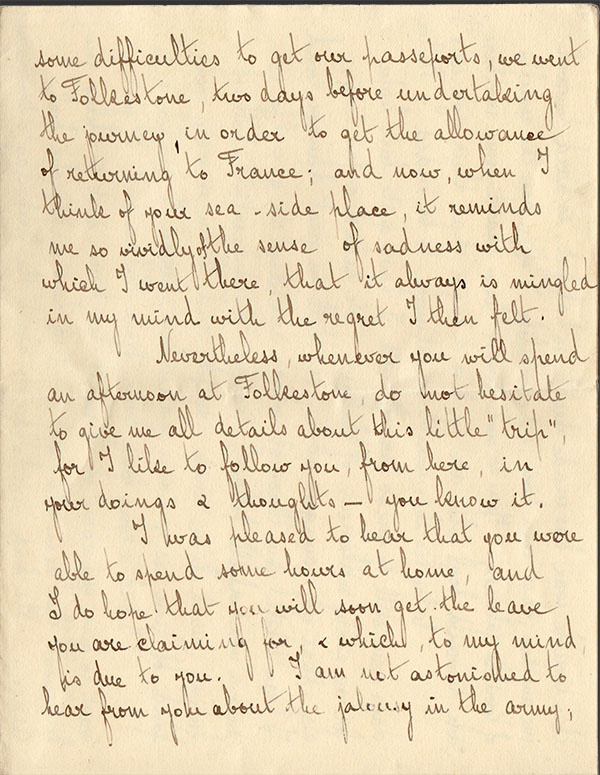 some difficulties to get our passeports, we went
to Folkestone, two days before undertaking
the journey, in order to get the allowance
of returning to France; and now, when I
think of your sea-side place, it reminds
me so vividly of the sense of sadness with
which I went there, that it always is mingled
in my mind with the regret I then felt.
Nevertheless, whenever you will spend
an afternoon at Folkestone, do not hesitate
to give me all details about this little "trip",
for I like to follow you, from here, in
your doings & thoughts — you know it.
I was pleased to hear that you were
able to spend some hours at home, and
I do hope that you will soon get the leave
you are claiming for, & which, to my mind,
is due to you. I am not astonished to
hear from you about the jalousy in the army;